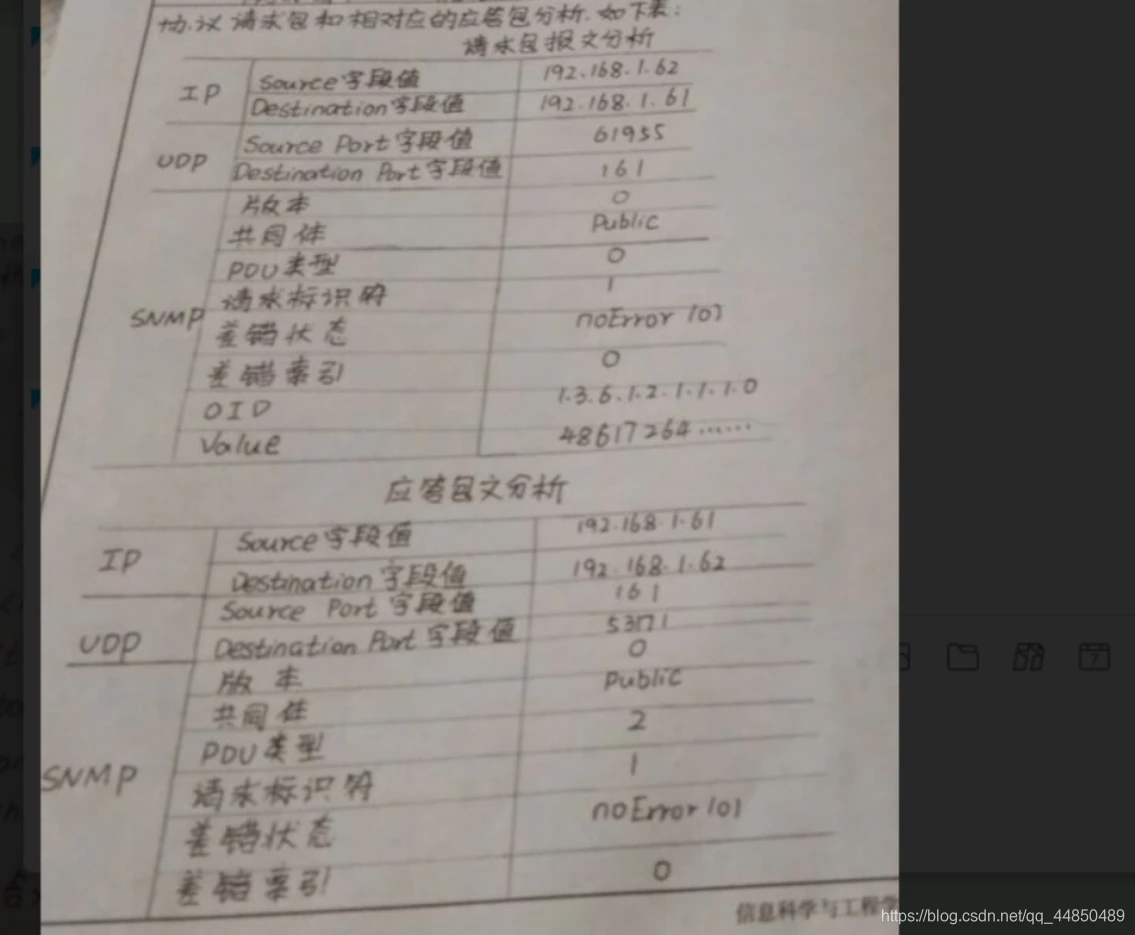 协议请求包和相对应的应答包分析.如下表:
请求包报文分析
IP
Source字段值 192.168.1.62
Destination字段值 192.168.1.61
UDP
Source Port字段值 61955
Destination Port字段值 161
SNMP
版本 0
共同体 Public
PDU类型 0
请求标识符 1
差错状态 noError(0)
差错索引 0
OID 1.3.6.1.2.1.1.1.0
Value 48617264……
应答包文分析
IP
Source字段值 192.168.1.61
Destination字段值 192.168.1.62
UDP
Source Port字段值 161
Destination Port字段值
SNMP
版本 0
共同体 Public
PDU类型 2
请求标识符 1
差错状态 noError(0)
差错索引 0
信息科学与工程学
https://blog.csdn.net/qq_44850489